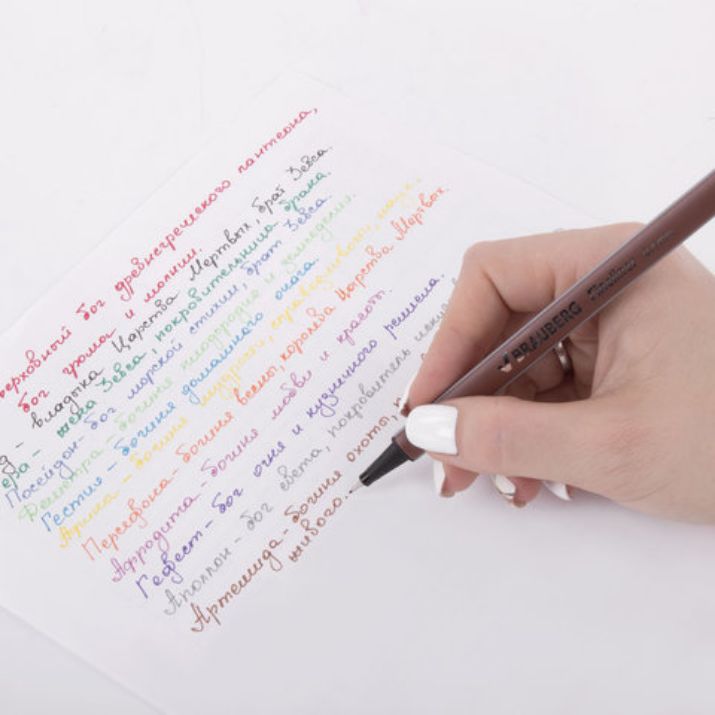 верховный бог древнегреческого пантеона,
бог грома и молнии.
владыка Царства Мертвых, брат Зевса.
жена Зевса, покровительница брака.
Посейдон - бог морской стихии, брат Зевса.
Деметра - богиня плодородия и земледелия.
Гестия - богиня домашнего очага.
Афина - богиня мудрости, справедливости, наук.
Персефона - богиня весны, королева Царства Мертвых.
Афродита - богиня любви и красоты.
Гефест - бог огня и кузнечного ремесла.
Аполлон - бог света, покровитель
Артемида - богиня охоты,
живого.
BRAUBERG Fineliner